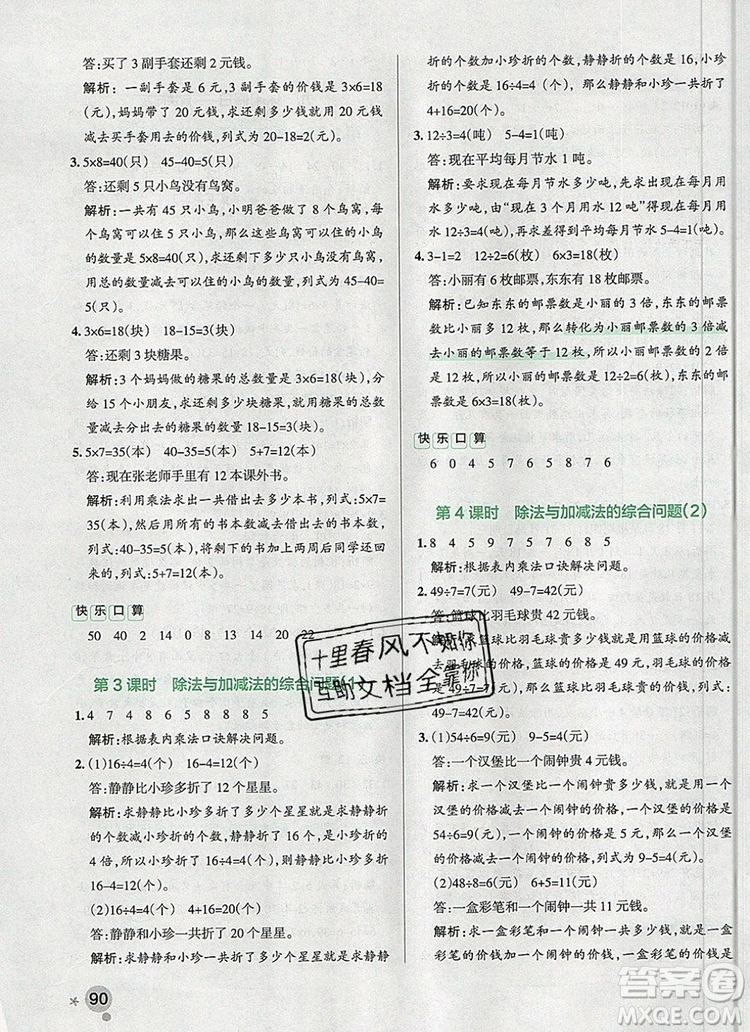 答:买了 3 副手套还剩 2 元钱。
解析:一副手套是 6 元,3 副手套的价钱是 3×6=18
(元),妈妈带了 20 元钱,求还剩多少钱就用 20 元钱
减去买手套用去的价钱,列式为 20-18=2(元)。
3. 5×8=40(只)　45-40=5(只)
答:还剩 5 只小鸟没有鸟窝。
解析:一共有 45 只小鸟,小明爸爸做了 8 个鸟窝,每
个鸟窝住 5 只小鸟,求还剩几只小鸟没有鸟窝用小鸟
的数量减去可以住进鸟窝的小鸟的数量。8 个鸟窝
可以住小鸟的数量是 5×8=40(只),每只小鸟住一
用总的数量减去可以住的小鸟的数量,列式为 45-40=
5(只)。
4. 3×6=18(块)　18-15=3(块)
答:还剩 3 块糖果。
解析:3 个妈妈做的糖果的总数量是 3×6=18(块),分给
15 个小朋友,求还剩多少块糖果,就用糖果的总数量减
去小朋友的数量,列式为 18-15=3(块)。
5. 5×7=35(本)　40-35=5(本)　5+7=12(本)
答:现在张老师手里有 12 本课外书。
解析:利用乘法求出一共借出去多少本书,列式:5×7=
35(本)。然后用总的书本数减去借出去的书本数,
列式:40-35=5(本)。剩下的书加上小朋友还回
来的,列式:5+7=12(本)。
快乐口算
50　40　2　14　0　8　13　14　20　22
第 3 课时　除法与加减法的综合问题(1)
1. 4　7　4　8　6　5　8　8　8　5
解析:根据表内乘法口诀解决问题。
2. (1)16÷4=4(个)　16-4=12(个)
答:静静比小珍多折了 12 个星星。
解析:求静静比小珍多折了多少个星星就是求静静折
的个数减小珍折的个数。静静折了 16 个,是小珍折的
4 倍,所以小珍折了 16÷4=4(个),则静静比小珍多折
16-4=12(个)。
(2)16÷4=4(个)　4+16=20(个)
答:静静和小珍一共折了 20 个星星。
解析:求静静和小珍一共折了多少个星星就是求静静
折的个数加小珍折的个数,静静折的个数是 16,小珍
折的个数是 16÷4=4(个),那么静静和小珍一共折了
4+16=20(个)。
3. 12÷3=4(吨)　5-4=1(吨)
答:现在平均每月节水 1 吨。
解析:求现在平均每月节水多少吨,先求现在每月用
水多少吨,现在 3 个月用水 12 吨,每月用水 12÷3=
4(吨)。再求差得到平均每月节水 5-4=1(吨)。
4. 3-1=2　12÷2=6(枚)　6×3=18(枚)
答:小丽有 6 枚邮票,东东有 18 枚邮票。
解析:已知东东的邮票数是小丽的 3 倍,东东的邮票数
比小丽多 12 枚,那么转化为小丽邮票数的 3 倍减
去小丽的邮票数等于 12 枚,所以小丽的邮票数的 2 倍
是 12 枚,小丽就是 12÷2=6(枚),东东的邮票数
就是 6×3=18(枚)。
快乐口算
6　0　4　5　7　6　5　8　7　6
第 4 课时　除法与加减法的综合问题(2)
1. 8　4　5　9　7　5　7　5　8　7
解析:根据表内乘法口诀解决问题。
2. 49÷7=7(元)　49-7=42(元)
答:篮球比羽毛球贵 42 元钱。
解析:求篮球比羽毛球贵多少钱,就是用篮球的价格减
去羽毛球的价格,篮球的价格是 49 元,羽毛球的价格是
49÷7=7(元)。篮球比羽毛球贵 49-7=42(元)。
3. (1)54÷6=9(元)　9-5=4(元)
答:一个汉堡比一个闹钟贵 4 元钱。
解析:求一个汉堡比一个闹钟贵多少钱,就是用一个
汉堡的价格减去一个闹钟的价格,一个汉堡的价格是
54÷6=9(元),一个闹钟的价格是 5 元,那么一个汉堡
的价格比一个闹钟的价格贵 9-5=4(元)。
(2)48÷8=6(元)　6+5=11(元)
答:一盒彩笔和一个闹钟一共 11 元钱。
解析:求一盒彩笔和一个闹钟的价格一共多少钱就是
用一盒彩笔的价格加一个闹钟的价格,一盒彩笔的价
90
十里春风不如你
互助文档全靠你
答案圈
MXQE.COM